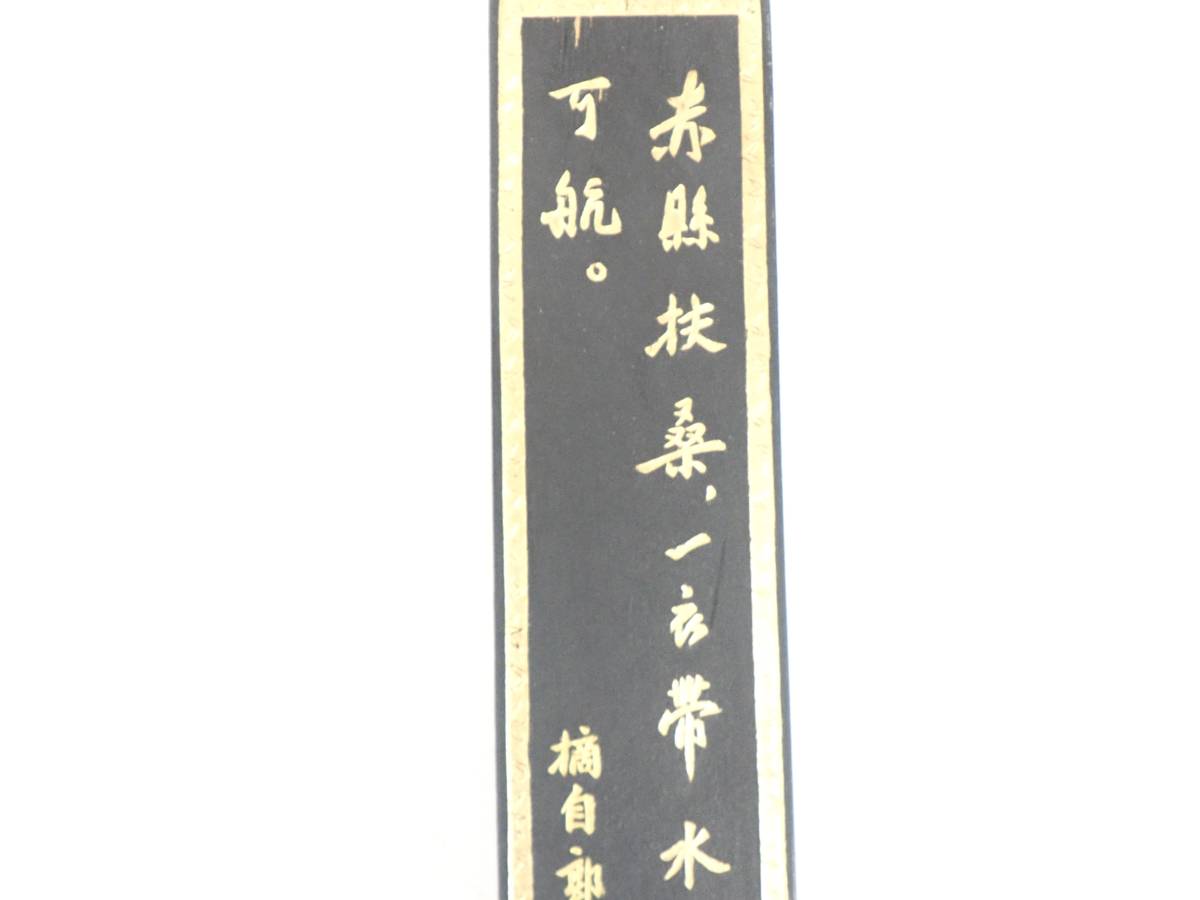 赤縣扶桑，一衣帶水
可航。
摘自郭